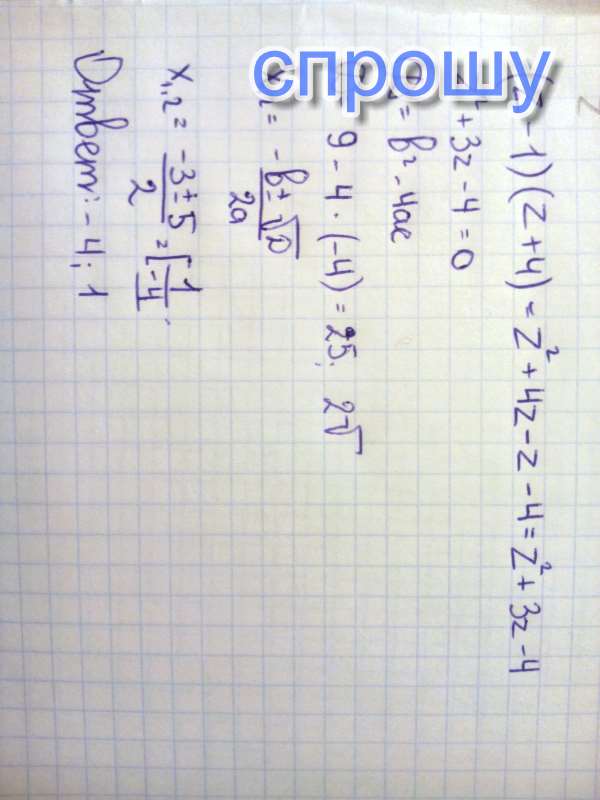 спрошу
- 1) (z + 4) = z² + 4z - z - 4 = z² + 3z - 4
² + 3z - 4 = 0
= b² - 4ac
9 - 4 · (-4) = 25; 2√
= -b ± √D / 2a
x₁,₂ = -3 ± 5 / 2 = [ 1 / -4
Ответ: -4; 1